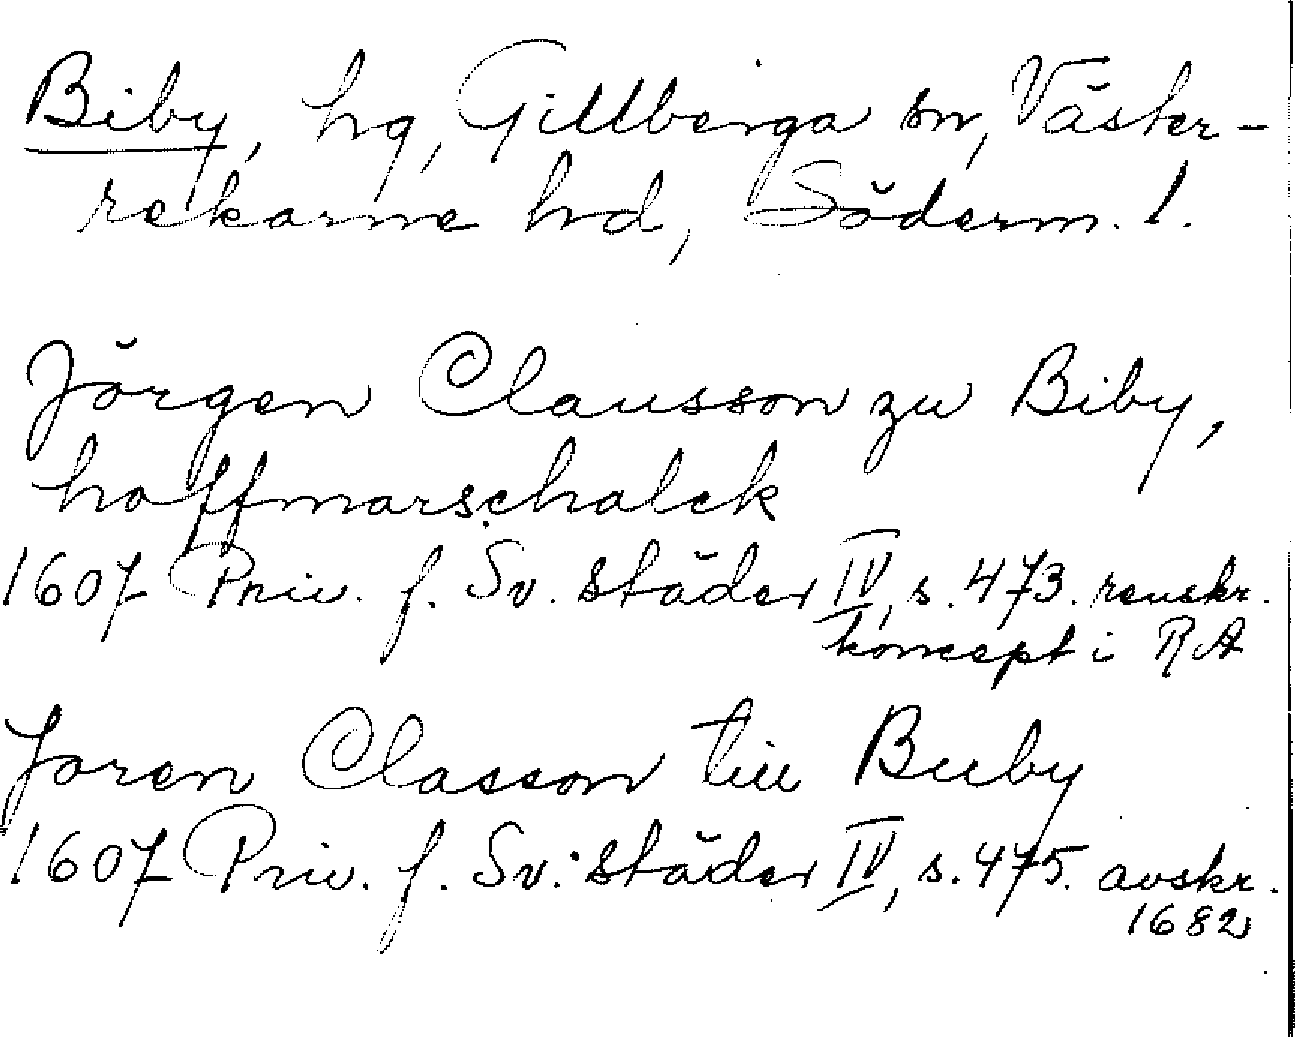 Biby, hg, Gillberga sn, Väster-
rekarne hd, Söderm. l.
Jörgen Clausson zu Biby,
hoffmarschalck
1607 Priv. f. Sv. städer IV, s. 473. renskr.
koncept i RA
Joren Classon till Buby
1607 Priv. f. Sv. städer IV, s. 475. avskr.
1682